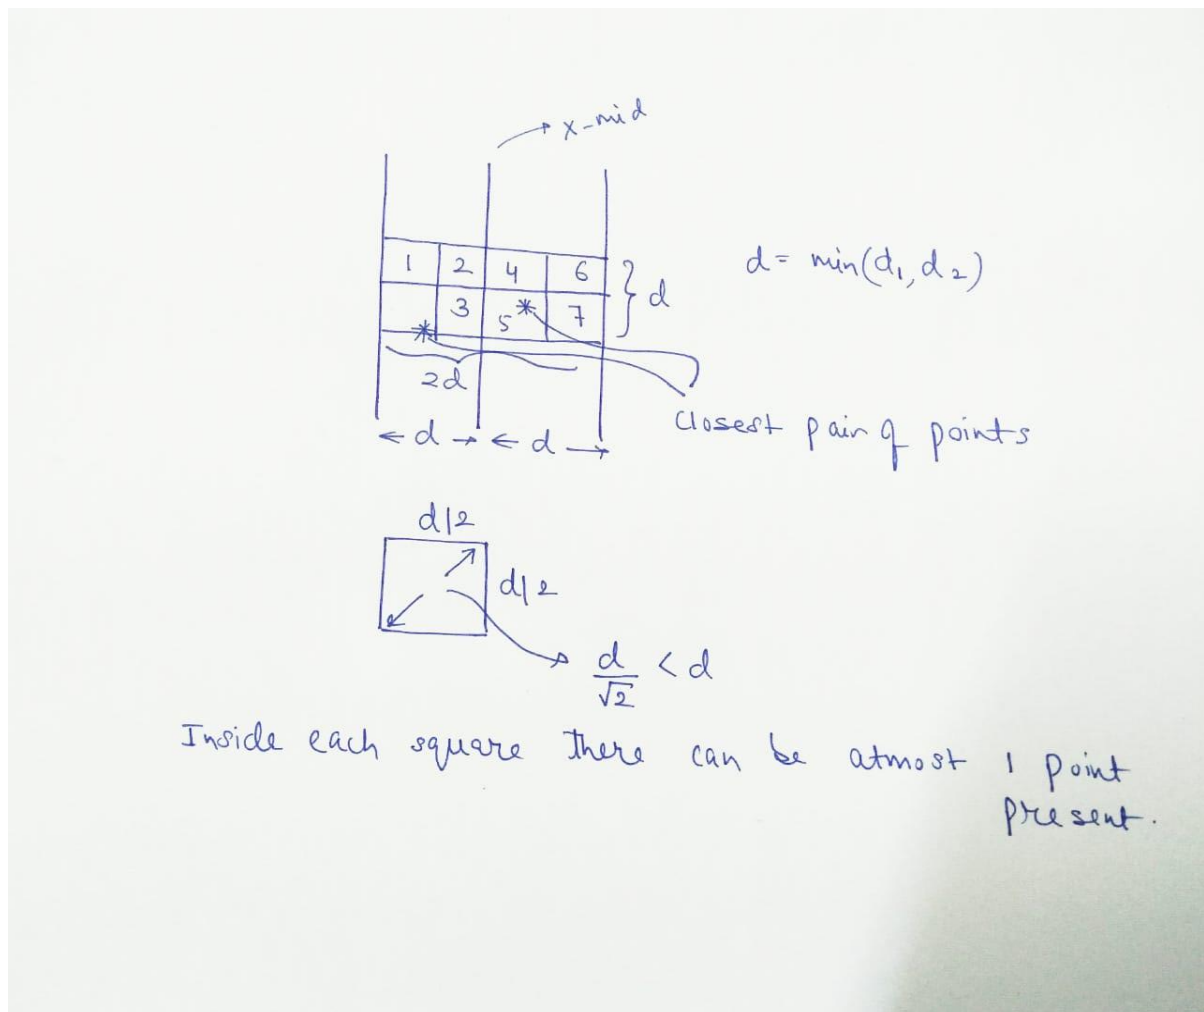 x-mid
1 2 4 6
d
d = min(d₁, d₂)
3 5 * 7
*
2d
← d → ← d →
Closest pair of points
d/2
d/2
d/√2 < d
Inside each square there can be atmost 1 point
present.